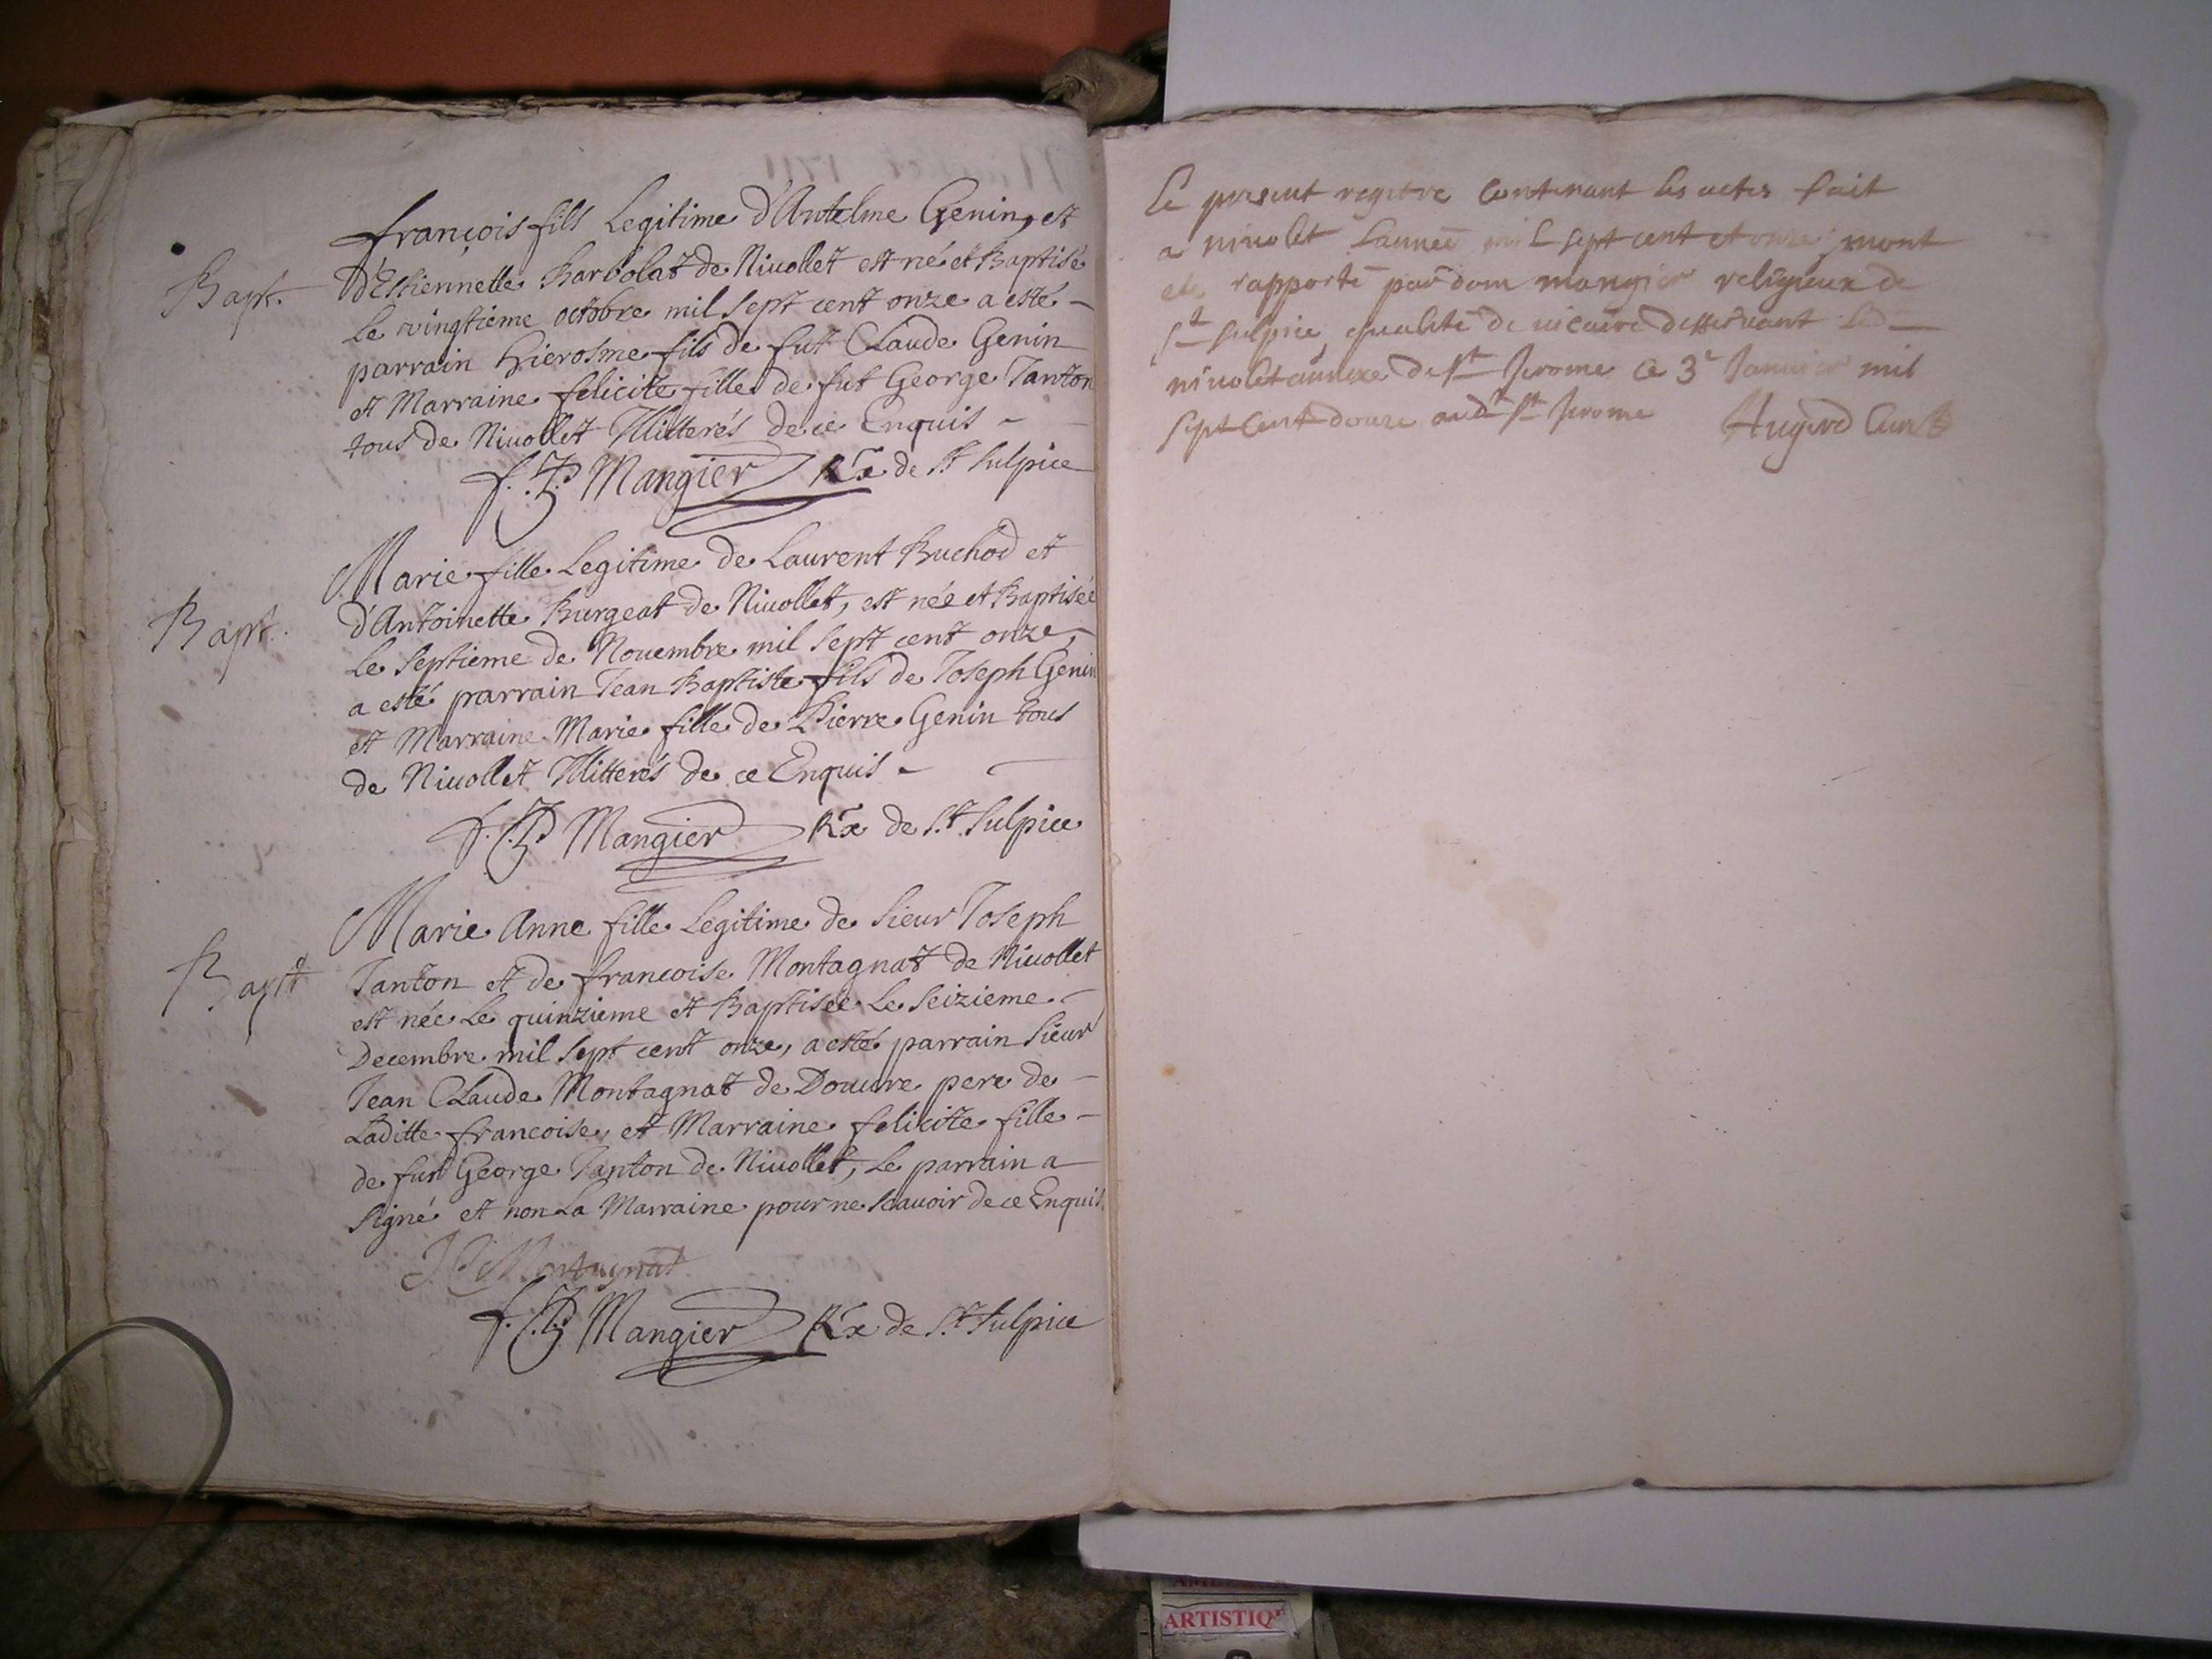 Bapt.
françois fils Legitime d'Antelme Genin, et
d'Estiennette Barbolat de Niuollet est né et Baptisé
Le vingtieme octobre mil sept cent onze a esté
parrain Hierosme fils de fut Claude Genin
et Marraine felicite fille de fut George Tanton
tous de Niuollet Illiterés de ce Enquis
Mangier Rx de St Sulpice
Bapt.
Marie fille Legitime de Laurent Buchod et
d'Antoinette Burgeat de Niuollet, est née et Baptisée
Le septieme de Nouembre mil sept cent onze,
a esté parrain Jean Baptiste fils de Joseph Genin
et Marraine Marie fille de Pierre Genin tous
de Niuollet Illiterés de ce Enquis
Mangier Rx de St Sulpice
Bapt
Marie Anne fille Legitime de sieur Joseph
Tanton et de francoise Montagnat de Niuollet
est née Le quinzieme et Baptisée Le seizieme
Decembre mil sept cent onze, a esté parrain sieur
Jean Claude Montagnat de Douure pere de
Laditte francoise, et Marraine felicite fille
de fut George Tanton de Niuollet, Le parrain a
signé et non La Marraine pour ne scauoir de ce Enquis
J C Montagnat
Mangier Rx de St Sulpice
Le present registre contenant les actes fait
a niuolet Lannee mil sept cent et onze mont
ete rapporté par dom mangier religieux de
St sulpice, qualité de uicaire desseruant led
niuolet annexe de St Jerome ce 3e Januier mil
sept cent douze audt St Jerome Curé
ARTISTIQ